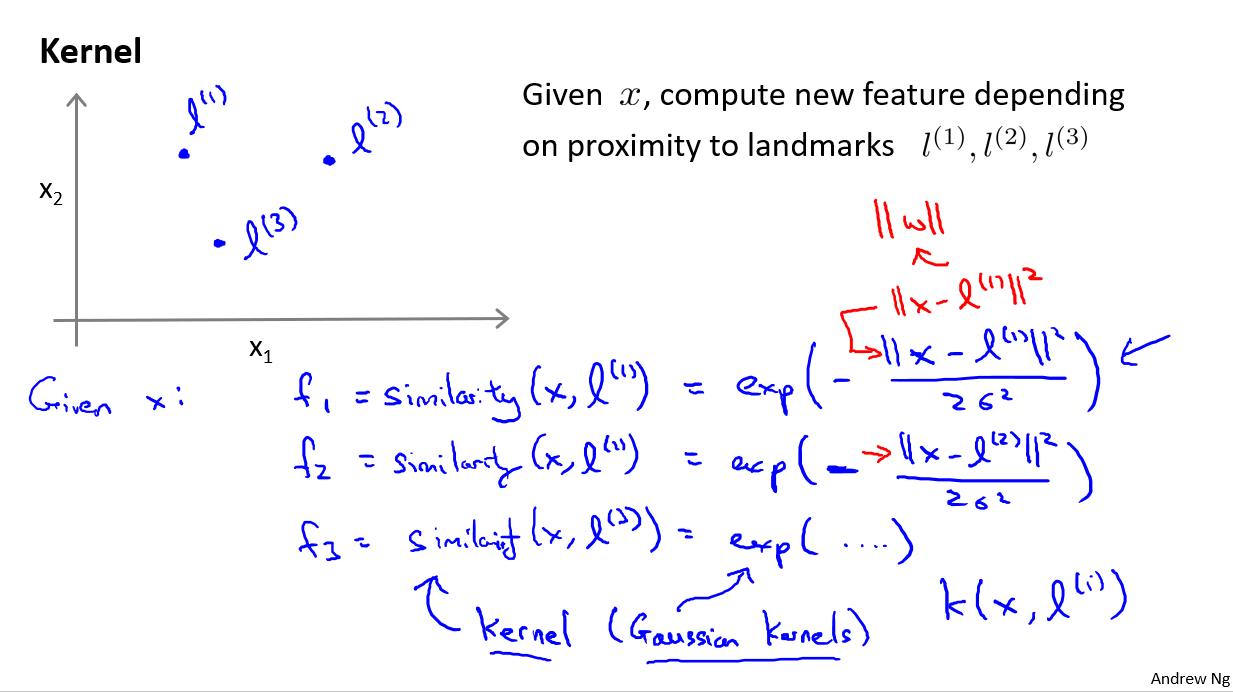 Kernel
l^(1)
l^(2)
l^(3)
x₂
x₁
Given x, compute new feature depending
on proximity to landmarks l^(1), l^(2), l^(3)
||w||
||x - l^(1)||²
Given x: f₁ = similarity(x, l^(1)) = exp(- ||x - l^(1)||² / 2σ²)
f₂ = similarity(x, l^(2)) = exp(- ||x - l^(2)||² / 2σ²)
f₃ = similarity(x, l^(3)) = exp(....)
kernel (Gaussian kernels)
k(x, l^(i))
Andrew Ng